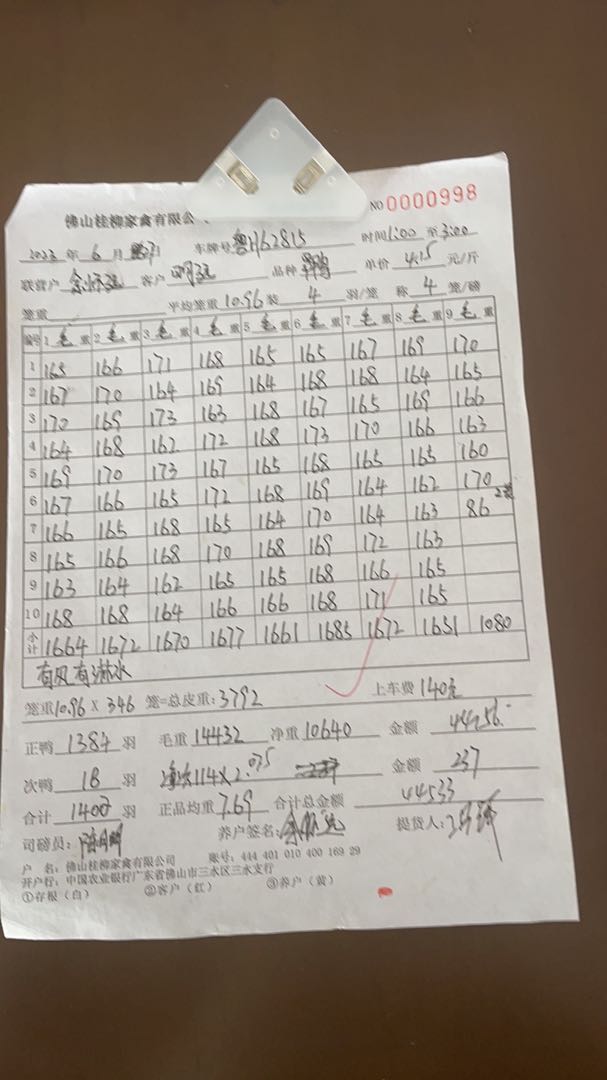 佛山桂柳家禽有限公
NO 0000998
2023 年 6 月 日 车牌号 粤H62815 时间 1:00 至 3:00
联营户 客户 品种 单价 4.15 元/斤
笼重 平均笼重 10.96 装 4 羽/笼 称 4 笼/磅
编号 1 毛 重 2 毛 重 3 毛 重 4 毛 重 5 毛 重 6 毛 重 7 毛 重 8 毛 重 9 毛 重
1 165 166 171 168 165 165 167 169 170
2 167 170 164 169 164 168 168 164 165
3 170 169 173 163 168 167 165 169 166
4 164 168 162 172 168 173 170 166 163
5 169 170 173 167 165 168 165 165 160
6 167 166 165 172 168 169 164 162 170
7 166 165 168 165 164 170 164 163 86 2笼
8 165 166 168 170 168 169 172 163
9 163 164 162 165 165 168 166 165
10 168 168 164 166 166 168 171 165
小计 1664 1672 1670 1677 1661 1685 1672 1651 1080
有风有淋水
笼重 10.96 × 346 笼=总皮重: 3792 上车费 140元
正鸭 1384 羽 毛重 14432 净重 10640 金额 44156.
次鸭 18 羽 114×2.075 金额 237
合计 羽 正品均重 7.69 合计总金额 44533
司磅员: 养户签名: 提货人:
户 名: 佛山桂柳家禽有限公司 账号: 444 401 010 400 169 29
开户行: 中国农业银行广东省佛山市三水区三水支行
①存根(白) ②客户(红) ③养户(黄)